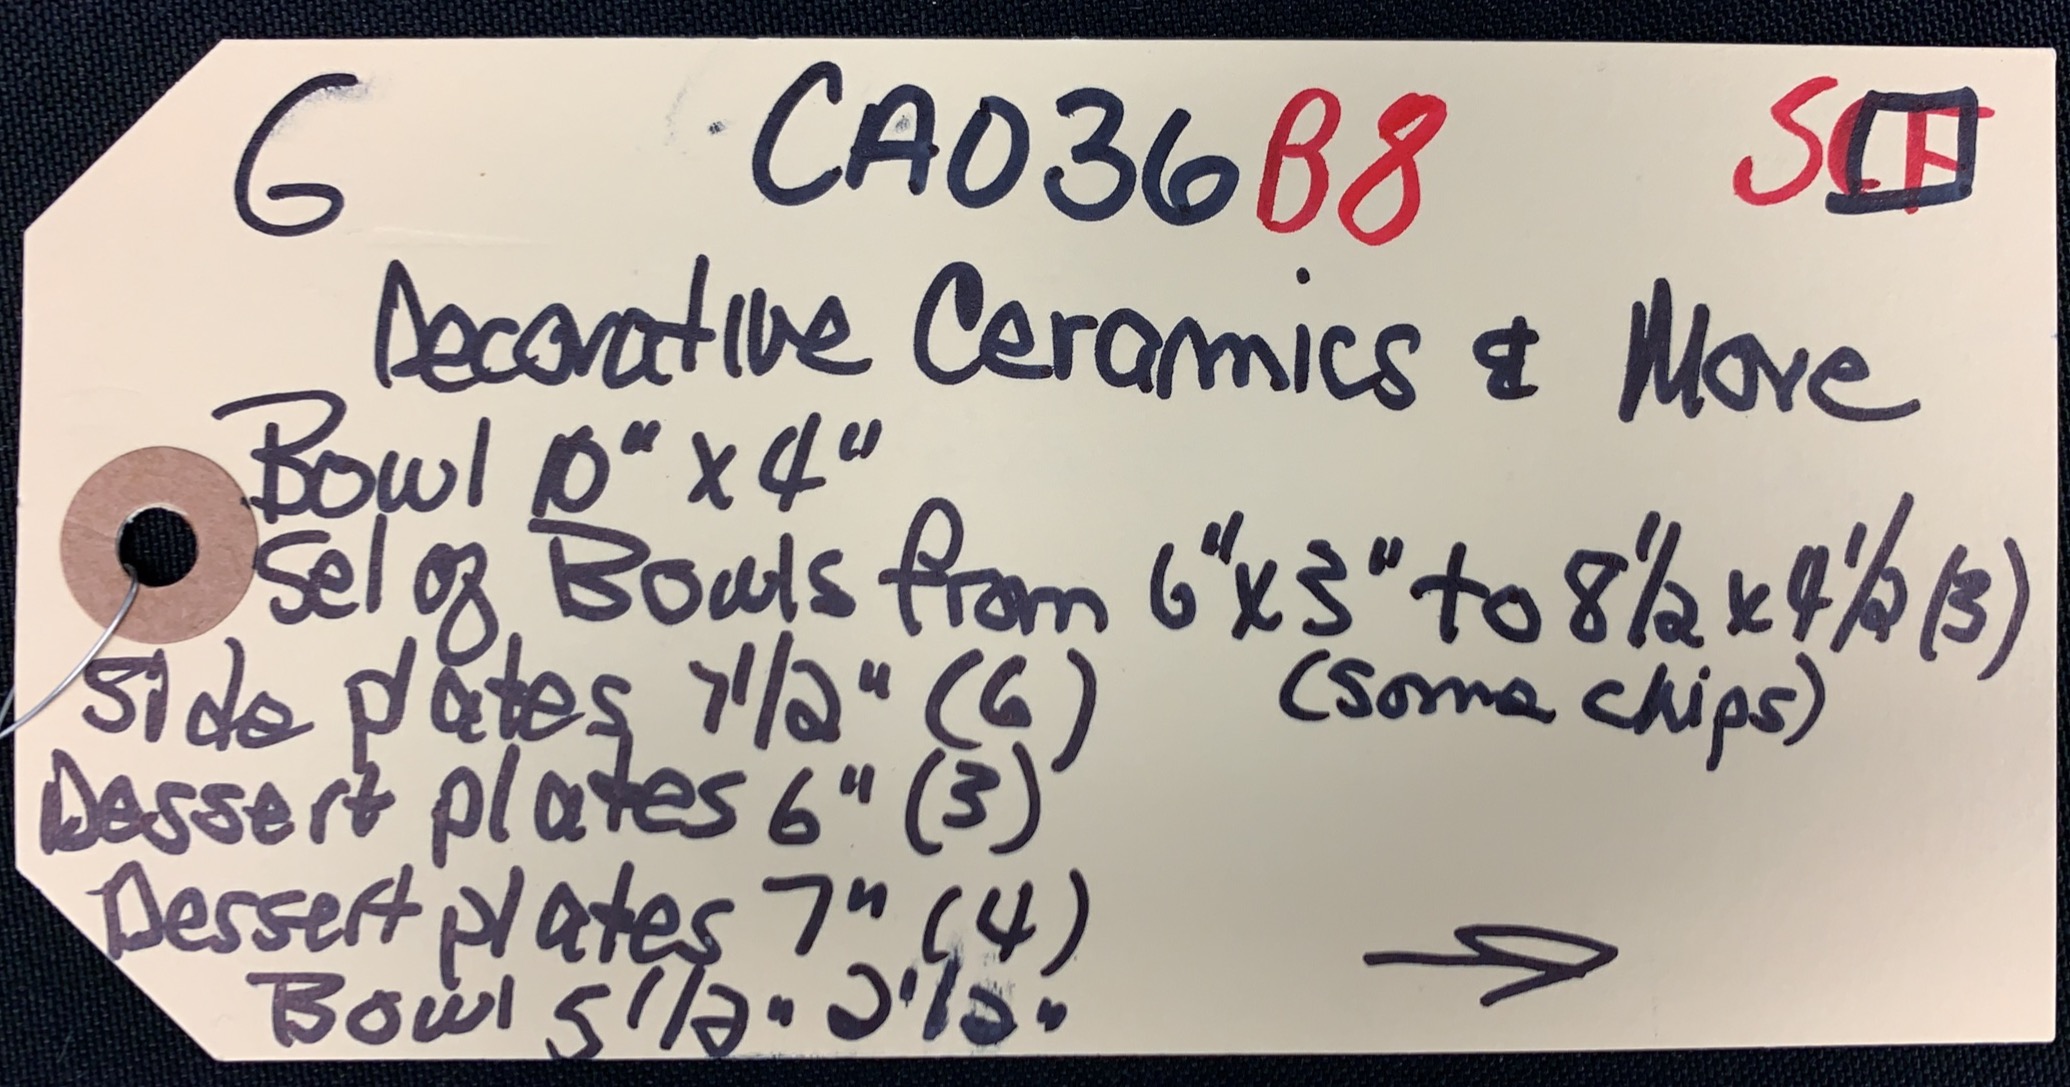 G CA036B8
Decorative Ceramics & More
Bowl 10" x 4"
Set of Bowls from 6"x3" to 8 1/2 x 4 1/2 (3)
(some chips)
Side plates 7 1/2" (6)
Dessert plates 6" (3)
Dessert plates 7" (4)
Bowl 5 1/2" 2 1/2"